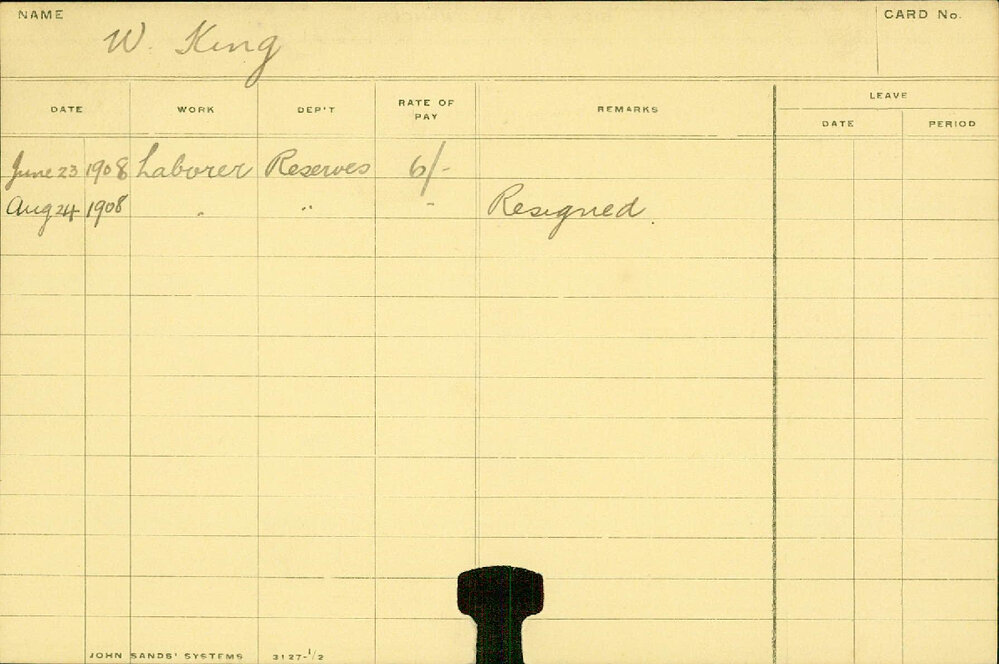 NAME W. King CARD No.
LEAVE
DATE WORK DEP'T RATE OF PAY REMARKS DATE PERIOD
June 23 1908 Laborer Reserves 6/-
Aug 24 1908 " " " Resigned.
JOHN SANDS' SYSTEMS 3127-1/2